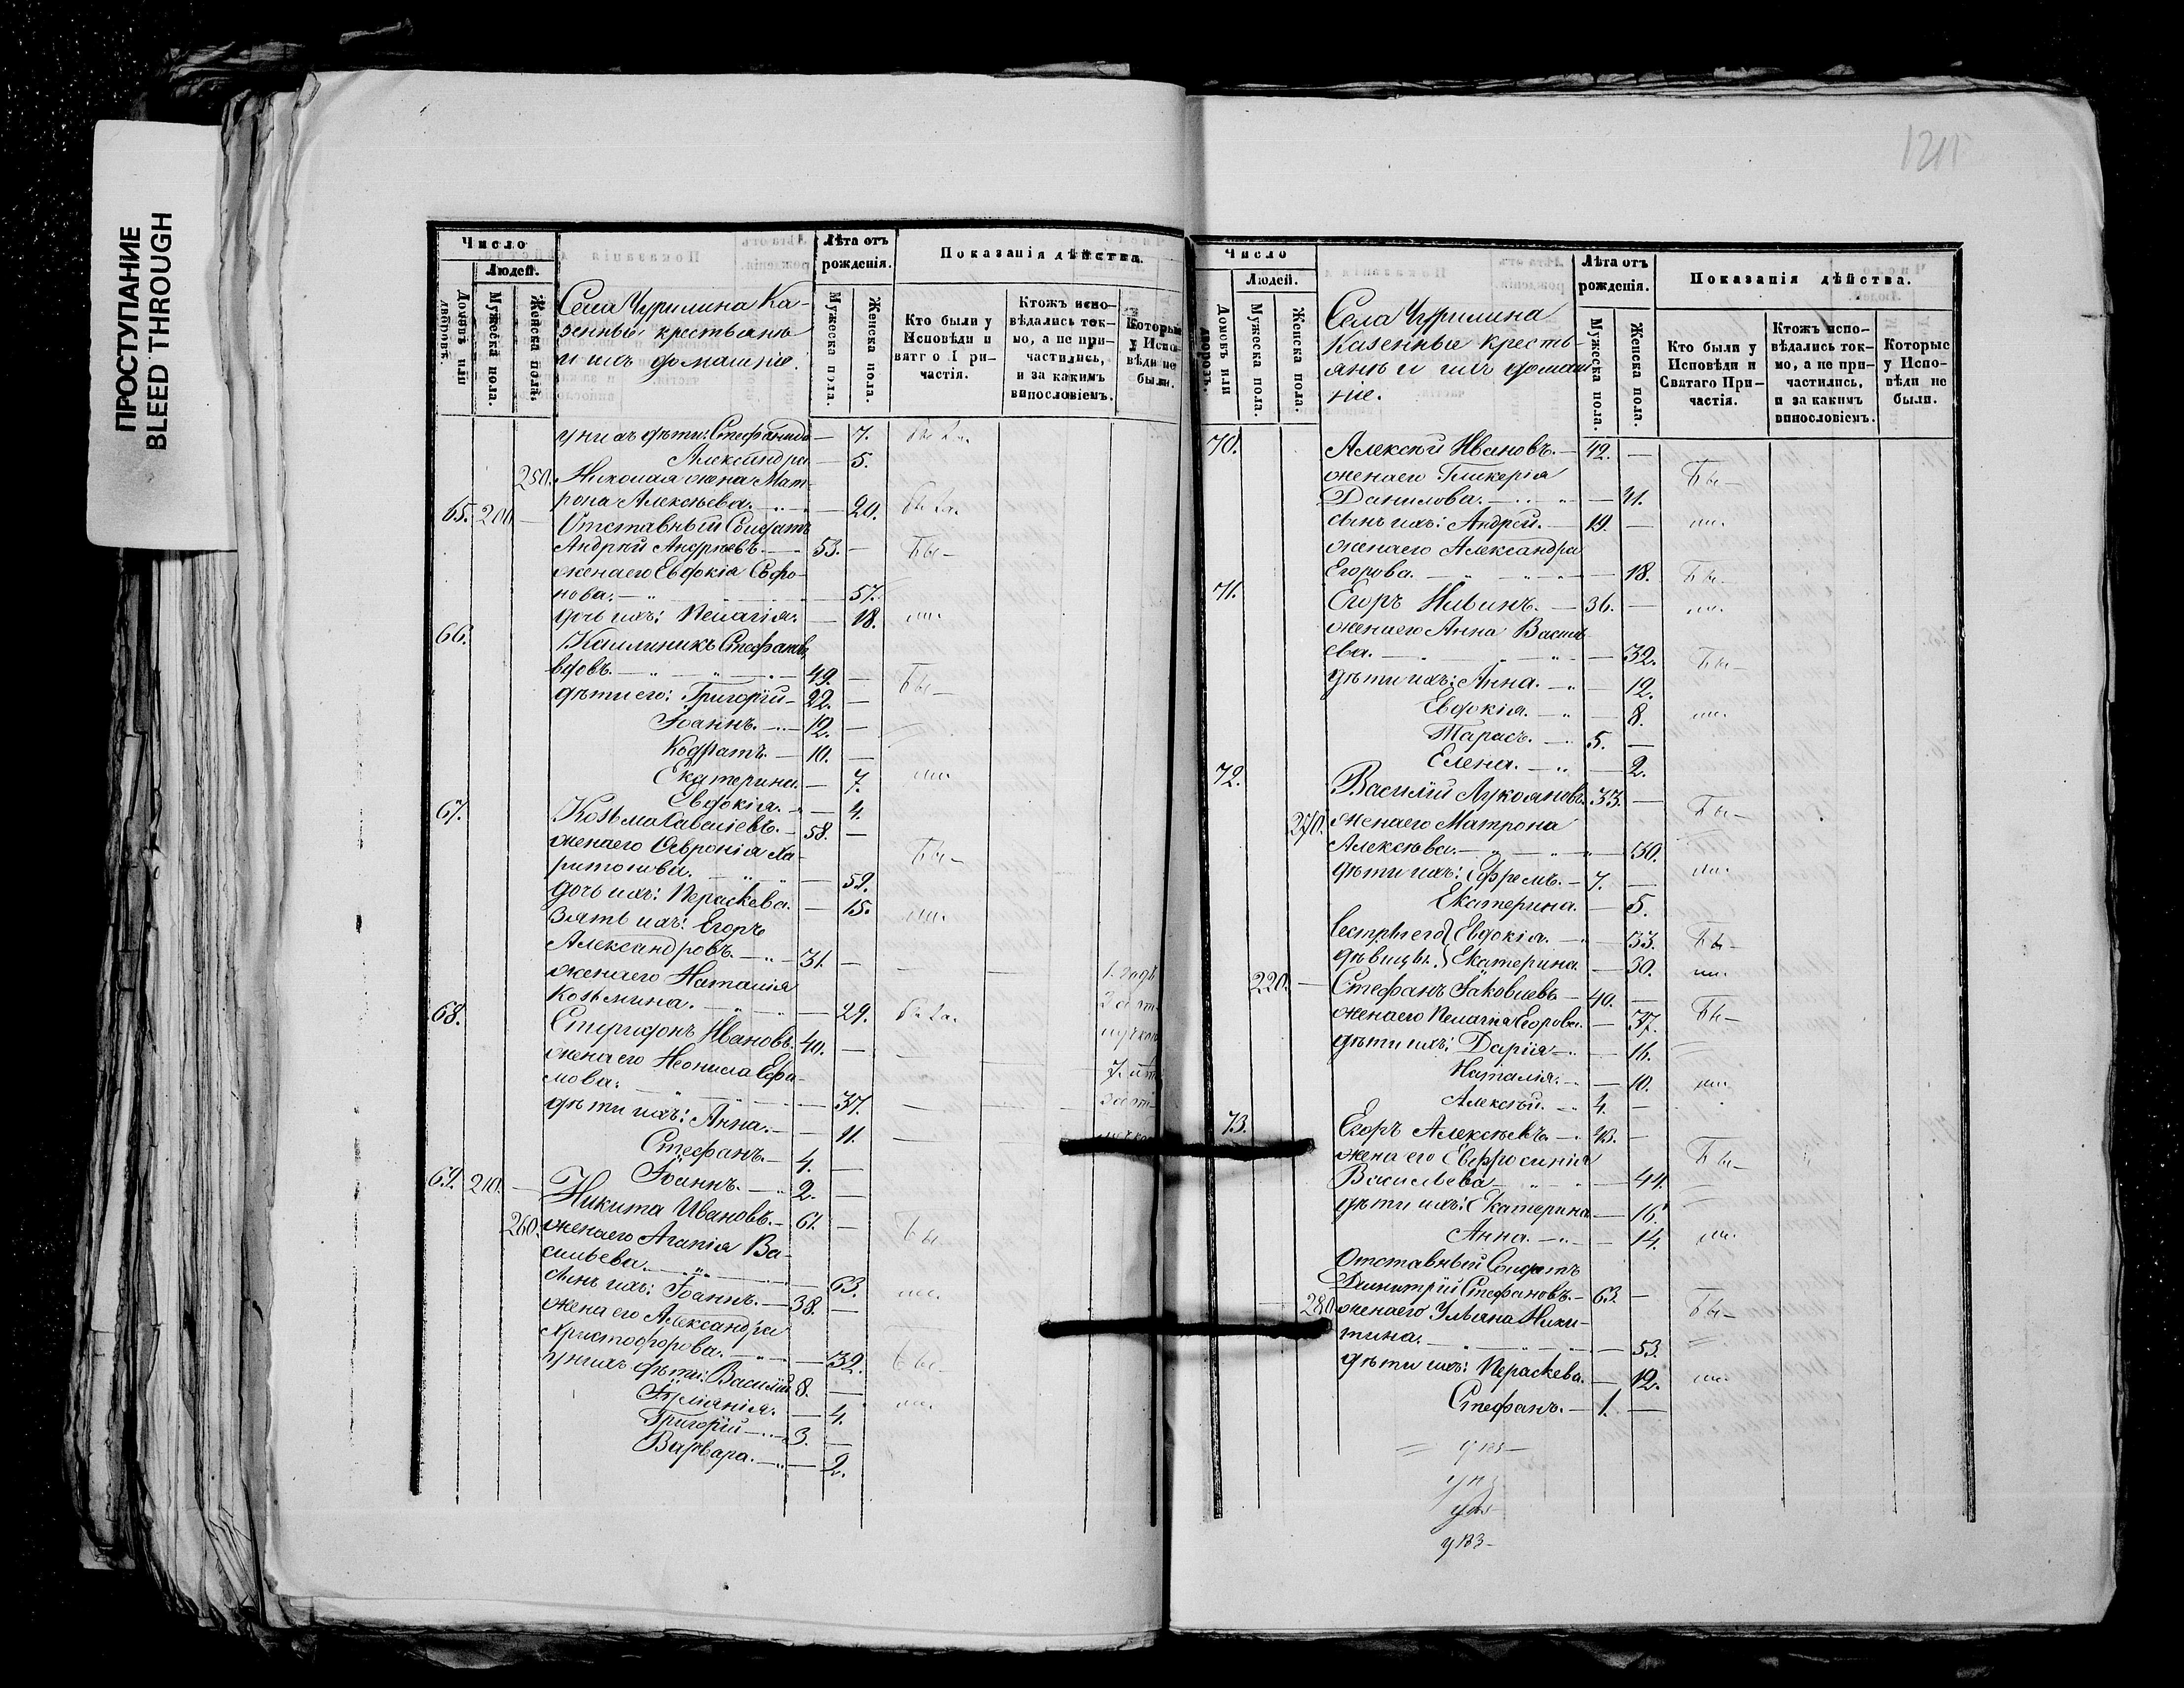 ПРОСТУПАНИЕ
BLEED THROUGH
Число
Людей.
Домовъ или дворовъ.
Мужеска пола.
Женска пола.
Села Чурилина Ка-
зенные крестьяне
и ихъ домашніе.
Лѣта отъ рожденія.
Мужеска пола.
Женска пола.
Показанія дѣйства.
Кто были у Исповѣди и
частія.
Ктожъ испо-
вѣдались ток-
мо, а не при-
частились,
и за какимъ
винословіемъ.
Которые
у Испо-
вѣди не
были.
у нихъ дѣти: Стефанида — 7. была.
Александра — 5.
250. Николая жена Мат-
рона Алексѣева. — 20. была.
65. 200 — Отставный Солдатъ
Андрей Андреевъ. — 53. — Бы—
жена его Евдокія Софо-
нова. — 57.
дочь ихъ: Пелагія. — 18. ли.
66. Каллиникъ Стефановъ,
вдовъ. — 49. — Бы—
дѣти его: Григорій — 22. —
Іоаннъ. — 12. —
Кодратъ. — 10. —
Екатерина. — 7. ли.
Евдокія. — 4.
67. Козьма Савеліевъ. — 58. —
жена его Февронія Ха-
ритонова. — 59. Бы—
дочь ихъ: Параскева. — 15. ли.
Зять ихъ: Егоръ
Александровъ. — 31. —
жена его Наталія
Козьмина. — 29. была.
1. годъ
68. Спиридонъ Ивановъ. 40. —
жена его Неонила Ефи-
мова. — 37.
дѣти ихъ: Анна. — 11.
Стефанъ. — 4. —
Іоаннъ. — 2. —
69. 210. — Никита Ивановъ. — 61. —
260. жена его Агапія Ва-
сильева. — 63. Бы
сынъ ихъ: Іоаннъ. — 38. — ли.
жена его Александра
Христофорова. — 32. Бы—
у нихъ дѣти: Василій 8. —
— 4. ли.
Григорій — 3. —
Варвара. — 2.
1211
Число
Людей.
Домовъ или дворовъ.
Мужеска пола.
Женска пола.
Села Чурилина
Казенные кресть-
яне и ихъ домаш-
ніе.
Лѣта отъ рожденія.
Мужеска пола.
Женска пола.
Показанія дѣйства.
Кто были у
Исповѣди и
Святаго При-
частія.
Ктожъ испо-
вѣдались ток-
мо, а не при-
частились,
и за какимъ
винословіемъ.
Которые
у Испо-
вѣди не
были.
70. Алексѣй Ивановъ. — 42. —
жена его Гликерія
Данилова. — 41. Бы—
сынъ ихъ: Андрей. — 19. — ли.
жена его Александра
Егорова. — 18. Бы—
71. Егоръ — 36. — ли.
жена его Анна Василь-
ева. — 32. Бы—
дѣти ихъ: Анна. — 12.
Евдокія. — 8. ли.
Тарасъ. — 5. —
Елена. — 2.
72. Василій Лукояновъ. 33. —
270. жена его Матрона Бы—
Алексѣева. — 30.
дѣти ихъ: Ефремъ. — 7. — ли.
Екатерина. — 5.
Сестры его Евдокія. — 33. Бы—
дѣвицы. Екатерина. — 30. ли.
220. — Стефанъ Іаковлевъ — 40. —
жена его Пелагія Егорова. — 37. Бы—
дѣти ихъ: Дарія — 16.
Наталія. — 10. ли.
Алексѣй. — 4. —
73. Егоръ Алексѣевъ. — 43. —
жена его Евфросинія
Васильева — 44. Бы—
дѣти ихъ: Екатерина — 16.
Анна. — 14. ли.
Отставный Солдатъ
Димитрій Стефановъ. — 63. —
280. жена его Ульяна Ники-
тина. — 53. Бы—
дѣти ихъ: Параскева. — 12. ли.
Стефанъ. — 1. —